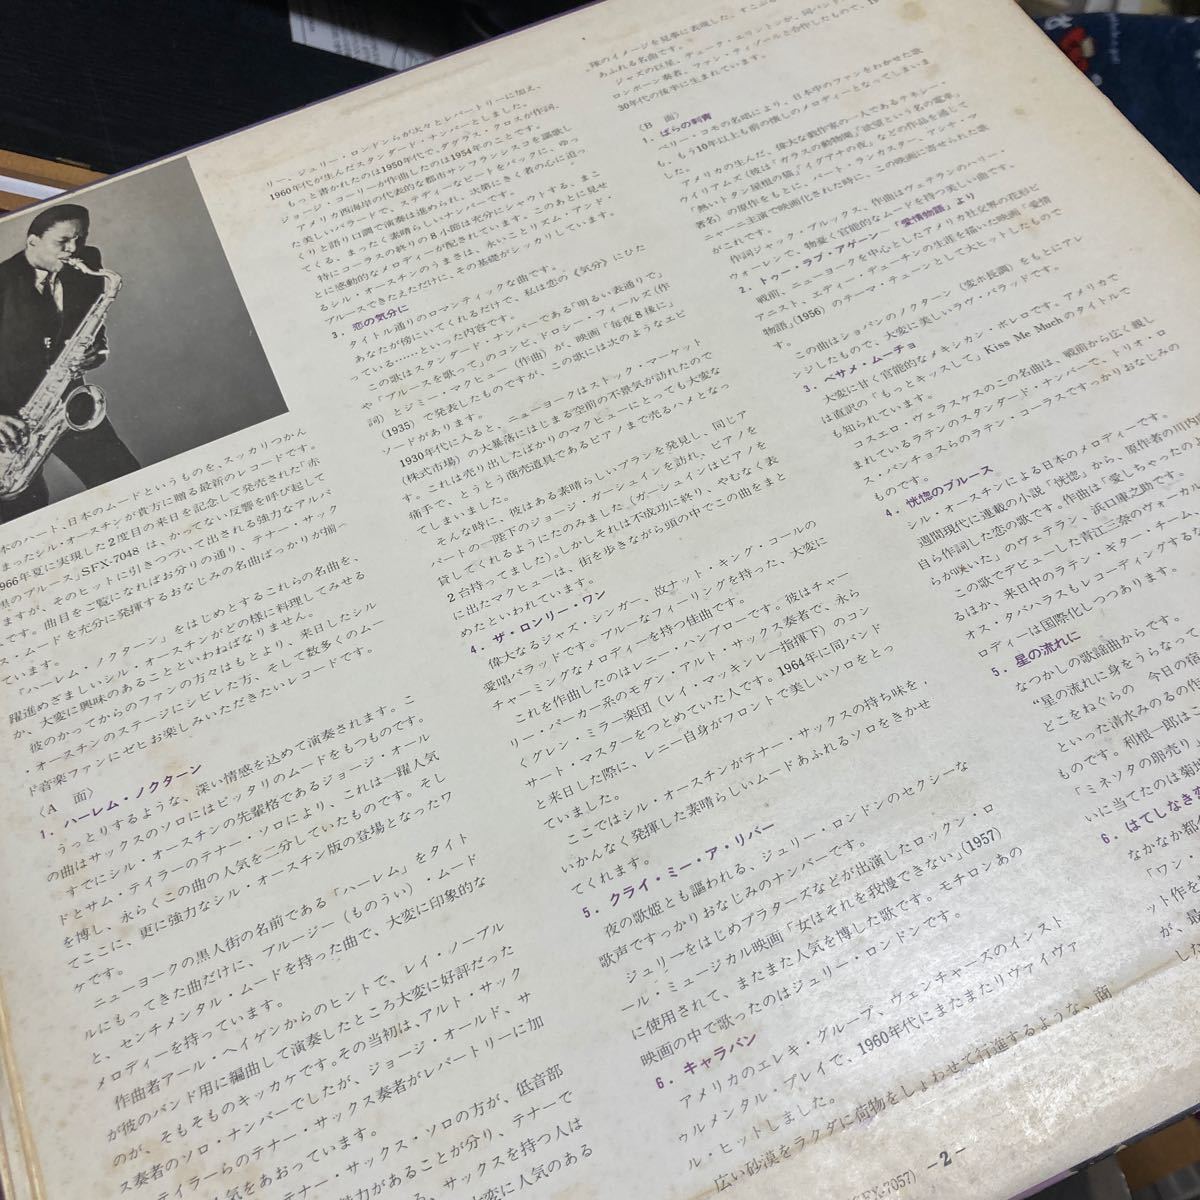 日本のハート、日本のムードというものを、スッカリつかん
まったシル・オースチンが貴方に贈る最新のレコードです。
966年夏に実現した2度目の来日を記念して発売された「赤
黒のブルース」SFX-7048は、かつてない反響を呼び起して
ますが、そのヒットに引きつづいて出される強力なアルバ
です。曲目をご覧になればお分りの通り、テナー・サック
ス・ムードを充分に発揮するおなじみの名曲ばっかりが揃へ
ています。
「ハーレム・ノクターン」をはじめとするこれらの名曲を、
躍進めざましいシル・オースチンがどの様に料理してみせる
か、大変に興味のあることといわねばなりません。
彼のかってからのファンの方々はもとより、来日したシル
・オースチンのステージにシビレた方、そして数多くのムー
ド音楽ファンにゼヒお楽しみいただきたいレコードです。
〈A 面〉
1．ハーレム・ノクターン
うっとりするような、深い情感を込めて演奏されます。こ
の曲はサックスのソロにはピッタリのムードをもつものです。
すでにシル・オースチンの先輩格であるジョージ・オール
ドとサム・テイラーのテナー・ソロにより、これは一躍人気
を博し、永らくこの曲の人気を二分していたものです。そし
てここに、更に強力なシル・オースチン版の登場となったワ
ケです。
ニューヨークの黒人街の名前である「ハーレム」をタイト
ルにもってきた曲だけに、ブルージー（ものうい）・ムード
と、センチメンタル・ムードを持った曲で、大変に印象的な
メロディーを持っています。
作曲者アール・ヘイゲンからのヒントで、レイ・ノーブル
が彼のバンド用に編曲して演奏したところ大変に好評だった
のが、そもそものキッカケです。その当初は、アルト・サック
ス奏者のソロ・ナンバーでしたが、ジョージ・オールド、サ
テイラーらのテナー・サックス奏者がレパートリーに加
人気をあおっています。
テナー・サックス・ソロの方が、低音部
魅力があることが分り、テナーで
サックスを持つ人は
大変に人気のある
リー、ジュリー・ロンドンらが次々とレパートリーに加え、
1960年代が生んだスタンダード・ナンバーとしました。
もっと書かれたのは1950年代で、ダグラス・クロスが作詞、
ジョージ・コーリーが作曲したのは1954年のことです。
アメリカ西海岸の代表的な都市サンフランシスコを謳歌し
た美しいバラードで、ステディーなビートをバックに、ゆっ
くりと語り口調で演奏は進められ、次第にきく者の心に迫っ
てくる、まったく素晴らしいナンバーです。
特にコーラスの終りの8小節は充分にシャウトする、まこ
とに感動的なメロディーが配されています。このあとに見せ
るシル・オースチンのうまさは、永いことリズム・アンド・
ブルースできたえただけに、その基礎がシッカリしています。
3．恋の気分に
タイトル通りのロマンティックな曲です。
あなたが傍にいてくれるだけで、私は恋の《気分》にひた
っている……といった内容です。
この歌はスタンダード・ナンバーである「明るい表通りで」
や「ブルースを歌って」のコンビ、ドロシー・フィールズ（作
詞）とジミー・マクヒュー（作曲）が、映画「毎夜8後に」
（1935）で発表したものですが、この歌には次のようなエピ
ソードがあります。
1930年代に入ると、ニューヨークはストック・マーケット
（株式市場）の大暴落にはじまる空前の不景気が訪れたので
す。これは売り出したばかりのマクヒューにとっても大変な
痛手で、とうとう商売道具であるピアノまで売るハメとなっ
てしまいました。
そんな時に、彼はある素晴らしいプランを発見し、同じア
パートの一階下のジョージ・ガーシュインを訪れ、ピアノを
貸してくれるようにたのみました（ガーシュインはピアノを
2台持ってました）。しかしそれは不成功に終り、やむなく表
に出たマクヒューは、街を歩きながら頭の中でこの曲をまと
めたといわれています。
4．ザ・ロンリー・ワン
偉大なるジャズ・シンガー、故ナット・キング・コールの
愛唱バラッドです。ブルーなフィーリングを持った、大変に
チャーミングなメロディーを持つ佳曲です。
これを作曲したのはレニー・ハンブローです。彼はチャー
リー・パーカー系のモダン・アルト・サックス奏者で、永ら
くグレン・ミラー楽団（レイ・マッキンレー指揮下）のコン
サート・マスターをつとめていた人です。1964年に同バンド
と来日した際に、レニー自身がフロントで美しいソロをとっ
ていました。
ここではシル・オースチンがテナー・サックスの持ち味を、
いかんなく発揮した素晴らしいムードあふれるソロをきかせ
てくれます。
5．クライ・ミー・ア・リバー
夜の歌姫とも謳われる、ジュリー・ロンドンのセクシーな
歌声ですっかりおなじみのナンバーです。
ジュリーをはじめプラターズなどが出演したロックン・ロ
ール・ミュージカル映画「女はそれを我慢できない」（1957）
に使用されて、またまた人気を博した歌です。モチロンあの
映画の中で歌ったのはジュリー・ロンドンです。
6．キャラバン
アメリカのエレキ・グループ、ヴェンチャーズのインスト
ゥルメンタル・プレイで、1960年代にまたまたリヴァイヴァ
ル・ヒットしました。
広い砂漠をラクダに荷物をしょわせて行進するような、商
隊のイメージを見事に表現した、すこぶる
あふれる名曲です。
ジャズの巨星、デューク・エリントンが、同バンド
ロンボーン奏者、ファン・ティゾールと合作したもので、19
30年代の後半に生まれています。
〈B 面〉
1．ばらの刺青
ペリー・コモの名唱により、日本中のファンをわかせた歌
も、もう10年以上も前の懐しのメロディーとなってしまいま
アメリカの生んだ、偉大な戯作家の一人であるテネシー・
ウィリアムズ（彼は「ガラスの動物園」「欲望という名の電車」
「熱いトタン屋根の猫」「イグアナの夜」などの作品を通じて
著名）の原作をもとに、バート・ランカスター、アンナ・マ
ニャーニ主演で映画化された時に、この映画に寄せられた歌
がこれです。
作詞ジャック・ブルックス、作曲はヴェテランのハリー・
ウォーレンで、物憂く官能的なムードを持つ美しい曲です
2．トゥー・ラブ・アゲーン—「愛情物語」より
戦前、ニューヨークを中心としたアメリカ社交界の花形ピ
アニスト、エディー・デューチンの生涯を描いた映画「愛情
物語」（1956）のテーマ・チューンとして大ヒットしたもので
す。
この曲はショパンのノクターン（変ホ長調）をもとにアレ
ンジしたもので、大変に美しいラヴ・バラッドです。
3．ベサメ・ムーチョ
大変に甘く官能的なメキシカン・ボレロです。アメリカで
は直訳の「もっとキッスして」Kiss Me Muchのタイトルで
も知られています。
コスエロ・ヴェラスケスのこの名曲は、戦前から広く親し
まれているラテンのスタンダード・ナンバーで、トリオ・ロ
ス・パンチョスらのラテン・コーラスですっかりおなじみの
ものです。
4．恍惚のブルース
シル・オースチンによる日本のメロディーです。
週間現代に連載の小説「恍惚」から、原作者の川内
自ら作詞した恋の歌です。作曲は「愛しちゃったの
らが咲いた」のヴェテラン、浜口庫之助です。
この歌でデビューした青江三奈のヴォーカ
るほか、来日中のラテン・ギター・チーム、
オス・タバハラスもレコーディングするな
ロディーは国際化しつつあります。
5．星の流れに
なつかしの歌謡曲からです。
“星の流れに身をうらなって
どこをねぐらの 今日の宿
といった清水みのるの作
ものです。利根一郎はこ
「ミネソタの卵売り」
いに当てたのは菊地
6．はてしなき恋
なかなか都会
「ワン・
ット作を
が、最
した
(SFX-7057) —2—